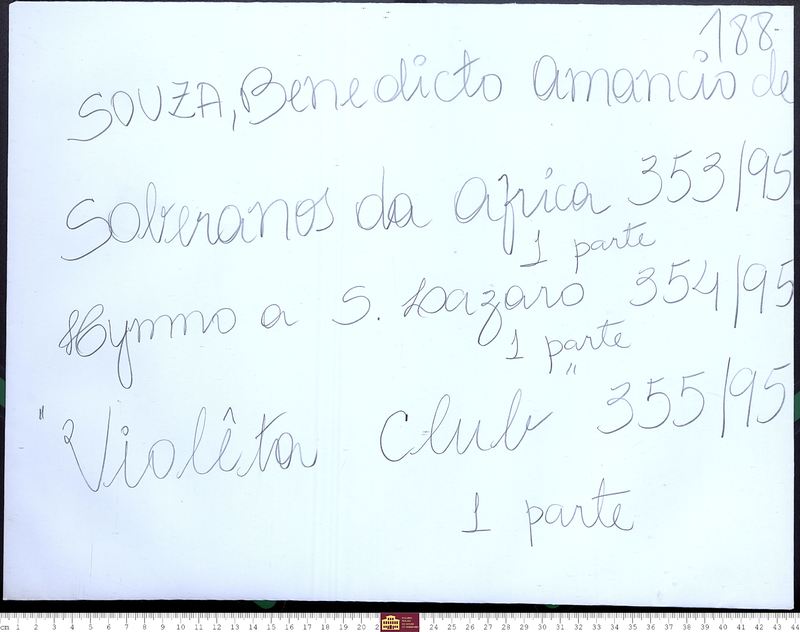 188-
SOUZA, Benedicto Amancio de
Soberanos da Africa 353/95
1 parte
Hymno a S. Lazaro 354/95
1 parte
"
" Violêta Club 355/95
1 parte
cm 1 2 3 4 5 6 7 8 9 10 11 12 13 14 15 16 17 18 19 20 2 24 25 26 27 28 29 30 31 32 33 34 35 36 37 38 39 40 41 42 43 44